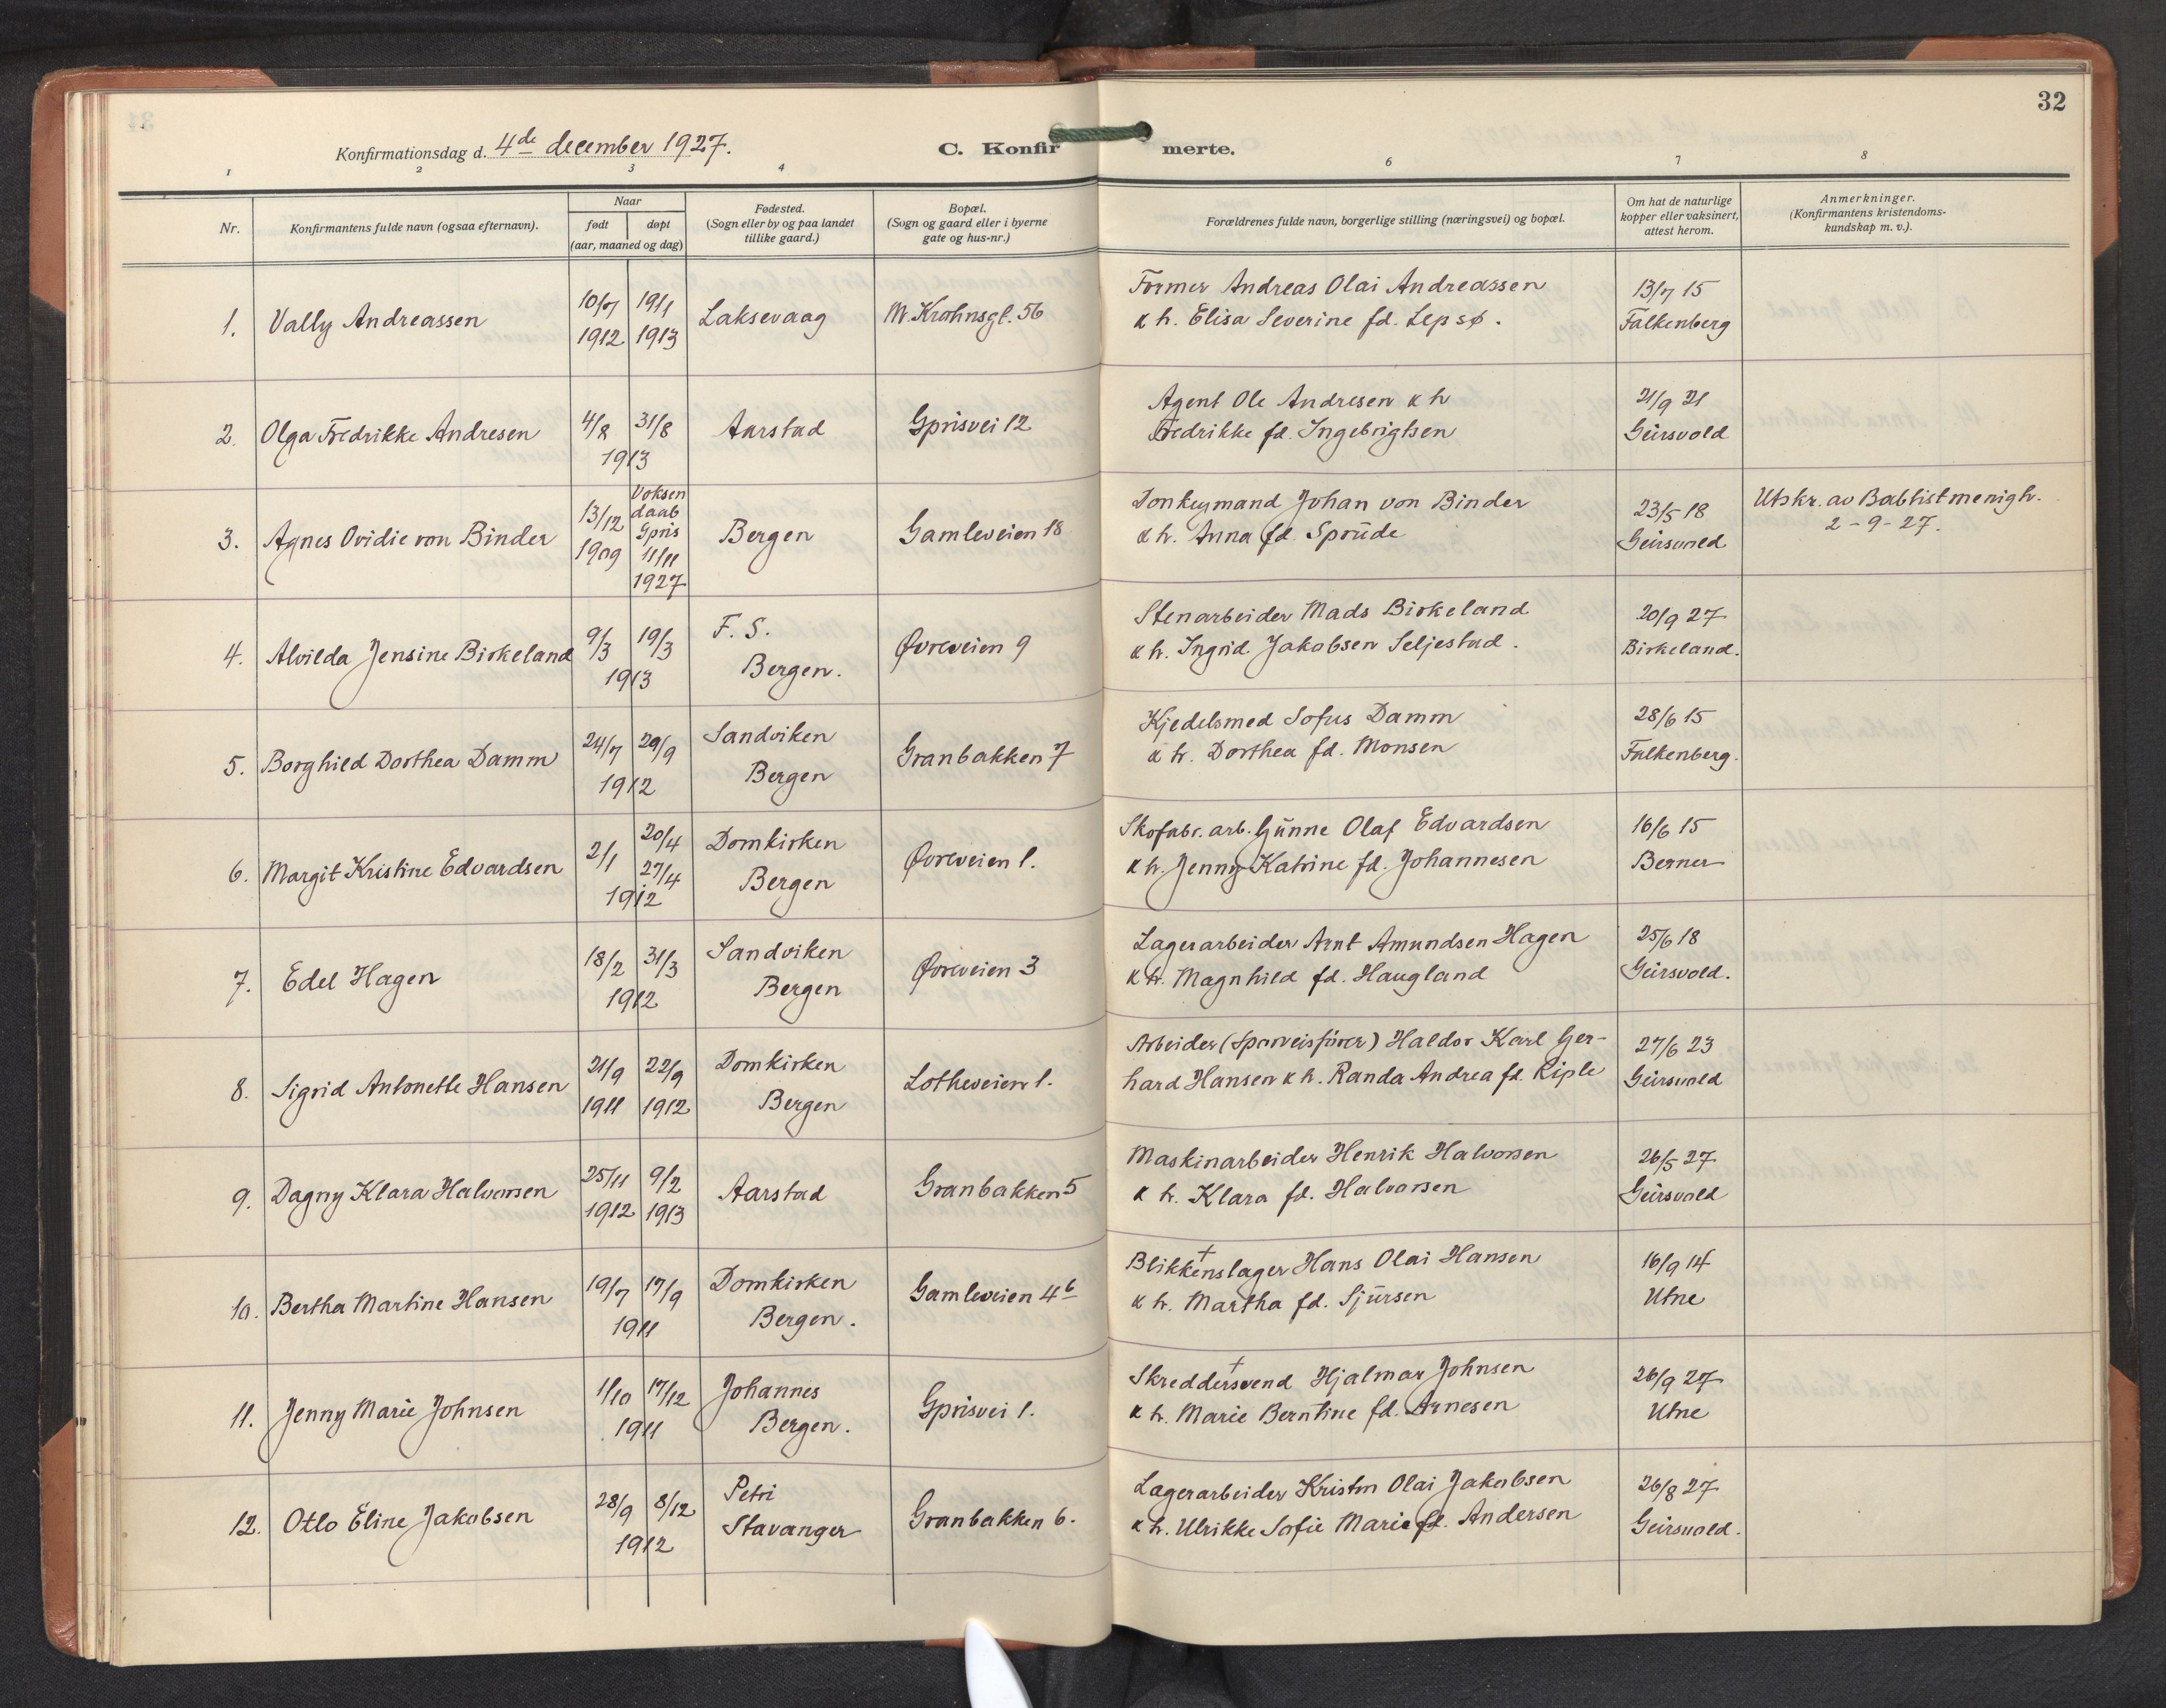 32
Konfirmationsdag d. 4de december 1927.
C. Konfirmerte.
1 2 3 4 6 7 8
Nr.
Konfirmantens fulde navn (ogsaa efternavn).
Naar
født døpt
(aar, maaned og dag)
Fødested.
(Sogn eller by og paa landet
tillike gaard.)
Bopæl.
(Sogn og gaard eller i byerne
gate og hus-nr.)
Forældrenes fulde navn, borgerlige stilling (næringsvei) og bopæl.
Om hat de naturlige
kopper eller vaksinert,
attest herom.
Anmerkninger.
(Konfirmantens kristendoms-
kundskap m. v.).
1. Vally Andreassen
10/7 19/1
1912 1913
Laksevaag
M. Krohnsgt. 56
Former Andreas Olai Andreassen
k h. Elisa Severine fd. Lepsø.
13/7 15
Falkenberg
2. Olga Fredrikke Andresen
4/8 31/8
1913
Aarstad
Gprisvei 12
Agent Ole Andresen k h
Fredrikke fd. Ingebrigtsen
21/9 21
Geirsvold
3. Agnes Ovidie von Binder
13/12
1909
Voksen
daab
Gpris
11/11
1927
Bergen
Gamleveien 18
Donkeymand Johan von Binder
k h. Anna fd. Sprüde
23/5 18
Geirsvold
Utskr. av Babtistmenigh.
2-9-27.
4. Alvilda Jensine Birkeland
9/3 19/3
1913
F. S.
Bergen.
Øvreveien 9
Stenarbeider Mads Birkeland
k h. Ingrid Jakobsen Seljestad.
20/9 27
Birkeland.
5. Borghild Dorthea Damm
24/7 29/9
1912
Sandviken
Bergen
Granbakken 7
Kjedelsmed Sofus Damm
k h. Dorthea fd. Monsen
28/6 15
Falkenberg.
6. Margit Kristine Edvardsen
2/1
20/4
27/4
1912
Domkirken
Bergen
Øvreveien 1.
Skofabr. arb. Gunne Olaf Edvardsen
k h. Jenny Katrine fd. Johannesen
16/6 15
Berner
7. Edel Hagen
18/2 31/3
1912
Sandviken
Bergen
Øvreveien 3
Lagerarbeider Arnt Amundsen Hagen
k h. Magnhild fd. Haugland
25/6 18
Geirsvold.
8. Sigrid Antonette Hansen
21/9 22/9
1911 1912
Domkirken
Bergen
Lotheveien 1.
Arbeider (sporveisfører) Haldor Karl Ger-
hard Hansen k h. Randa Andrea fd. Riple
27/6 23
Geirsvold
9. Dagny Klara Halvorsen
25/11 9/2
1912 1913
Aarstad
Granbakken 5
Maskinarbeider Henrik Halvorsen
k h. Klara fd. Halvorsen
26/5 27
Geirsvold
10. Bertha Martine Hansen
19/7 17/9
1911
Domkirken
Bergen.
Gamleveien 4b
Blikkenslager † Hans Olai Hansen
k h. Martha fd. Sjursen
16/9 14
Utne
11. Jenny Marie Johnsen
1/10 17/12
1911
Johannes
Bergen.
Gprisvei 1.
Skreddersvend † Hjalmar Johnsen
k h. Marie Berntine fd. Arnesen
26/9 27
Utne
12. Otto Eline Jakobsen
28/9 8/12
1912
Petri
Stavanger
Granbakken 6.
Lagerarbeider Kristen Olai Jakobsen
k h. Ulrikke Sofie Marie fd. Andersen
26/8 27
Geirsvold.